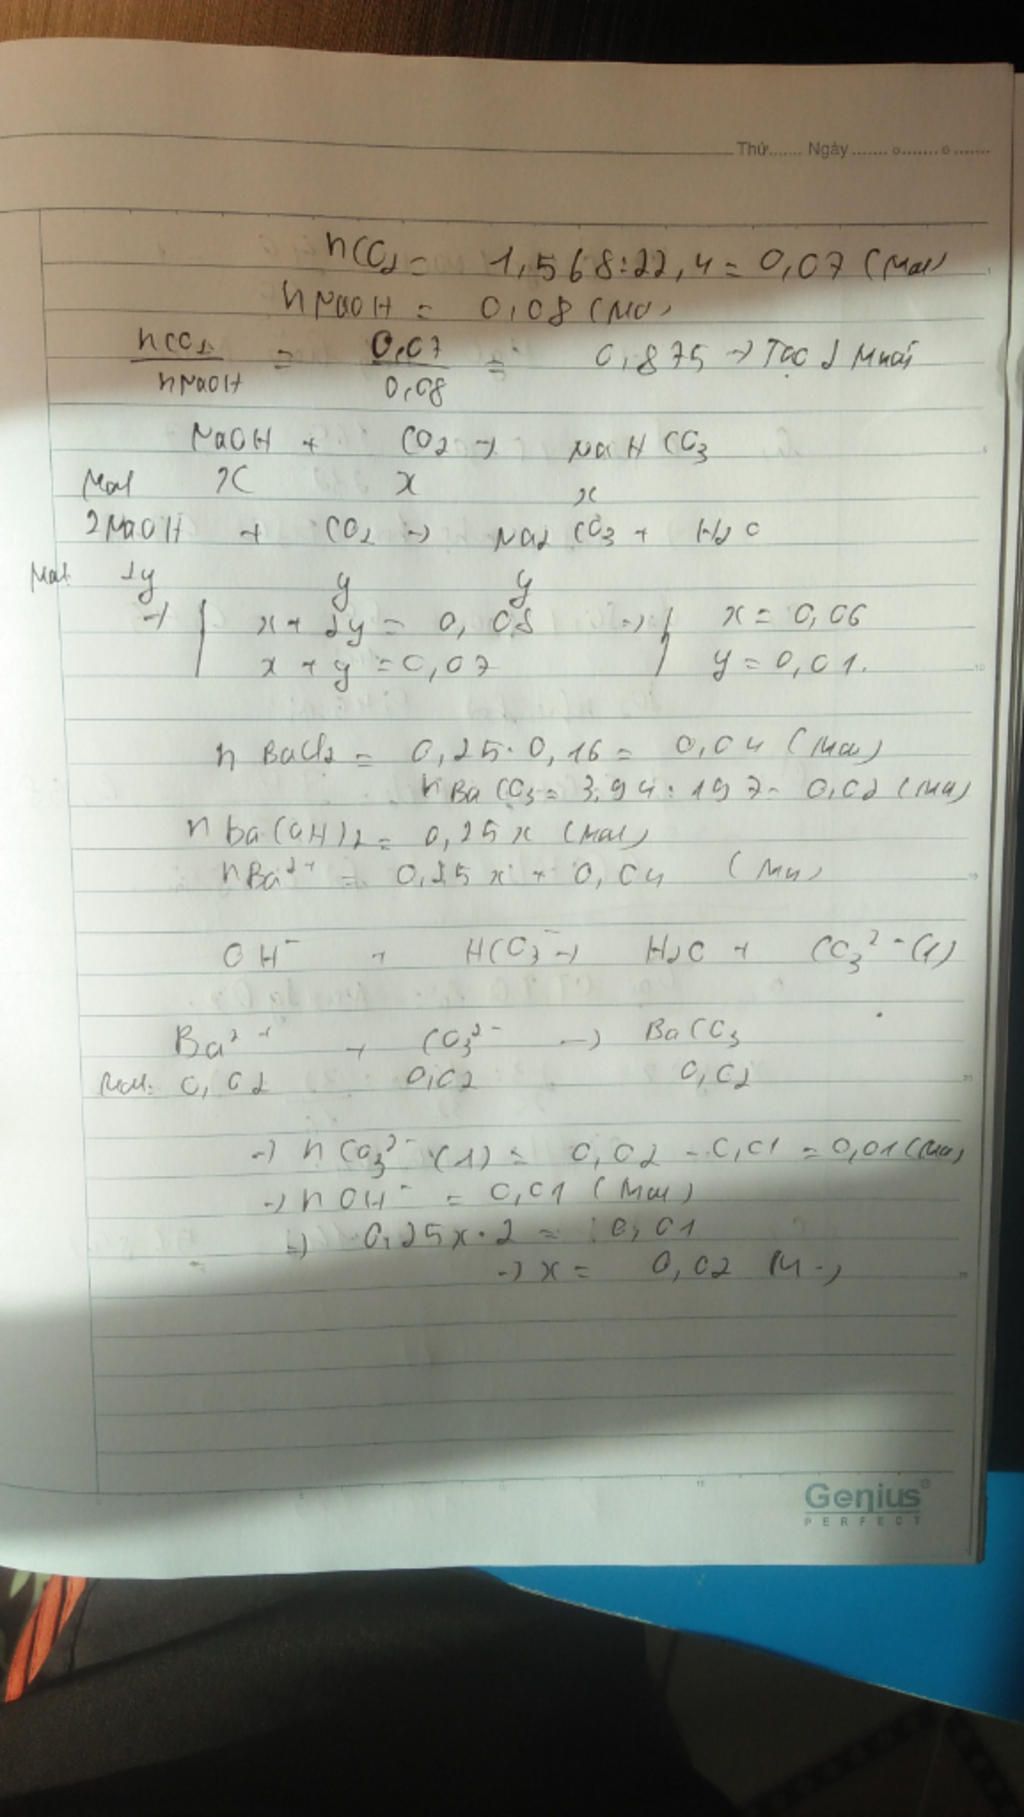 Thứ....... Ngày....... o....... o.......
nCO2 = 1,568:22,4 = 0,07 (Mol)
nNaOH = 0,08 (Mol)
nCO2/nNaOH = 0,07/0,08 = 0,875 → Tạo 2 Muối
NaOH + CO2 → NaHCO3
Mol x x x
2NaOH + CO2 → Na2CO3 + H2O
Mol: 2y y y
→ { x + 2y = 0,08 → { x = 0,06
x + y = 0,07 y = 0,01.
n BaCl2 = 0,25.0,16 = 0,04 (Mol)
nBaCO3 = 3,94:197 = 0,02 (Mol)
n Ba(OH)2 = 0,25x (Mol)
nBa2+ = 0,25x + 0,04 (Mol)
OH- + HCO3- → H2O + CO3 2- (1)
Ba2+ + CO3 2- → BaCO3
Mol: 0,02 0,02 0,02
→ nCO3 2- (1) = 0,02 - 0,01 = 0,01 (Mol)
→ nOH- = 0,01 (Mol)
→ 0,25x.2 = 0,01
→ x = 0,02 M
Genius
PERFECT